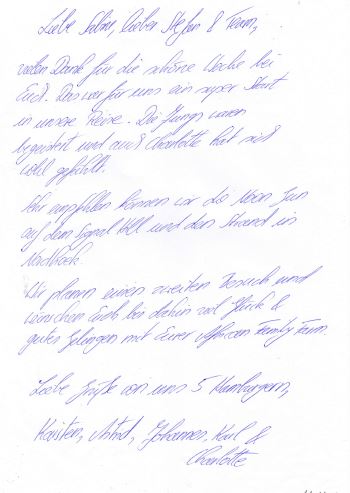 Liebe Sabin, lieber Stefan & Team,
vielen Dank für die schöne Woche bei
Euch. Das war für uns ein super Start
in unsere Reise. Die Jungs waren
begeistert und auch Charlotte hat sich
wohl gefühlt.
Sehr empfehlen können wir die Moon Sun
auf dem Signal Hill und den Strand in
Nordhoek.
Wir planen einen zweiten Besuch und
wünschen Euch bis dahin viel Glück &
gutes Gelingen mit Eurer African Family Farm.
Liebe Grüße von uns 5 Hamburgern,
Karsten, Astrid, Johannes, Karl &
Charlotte